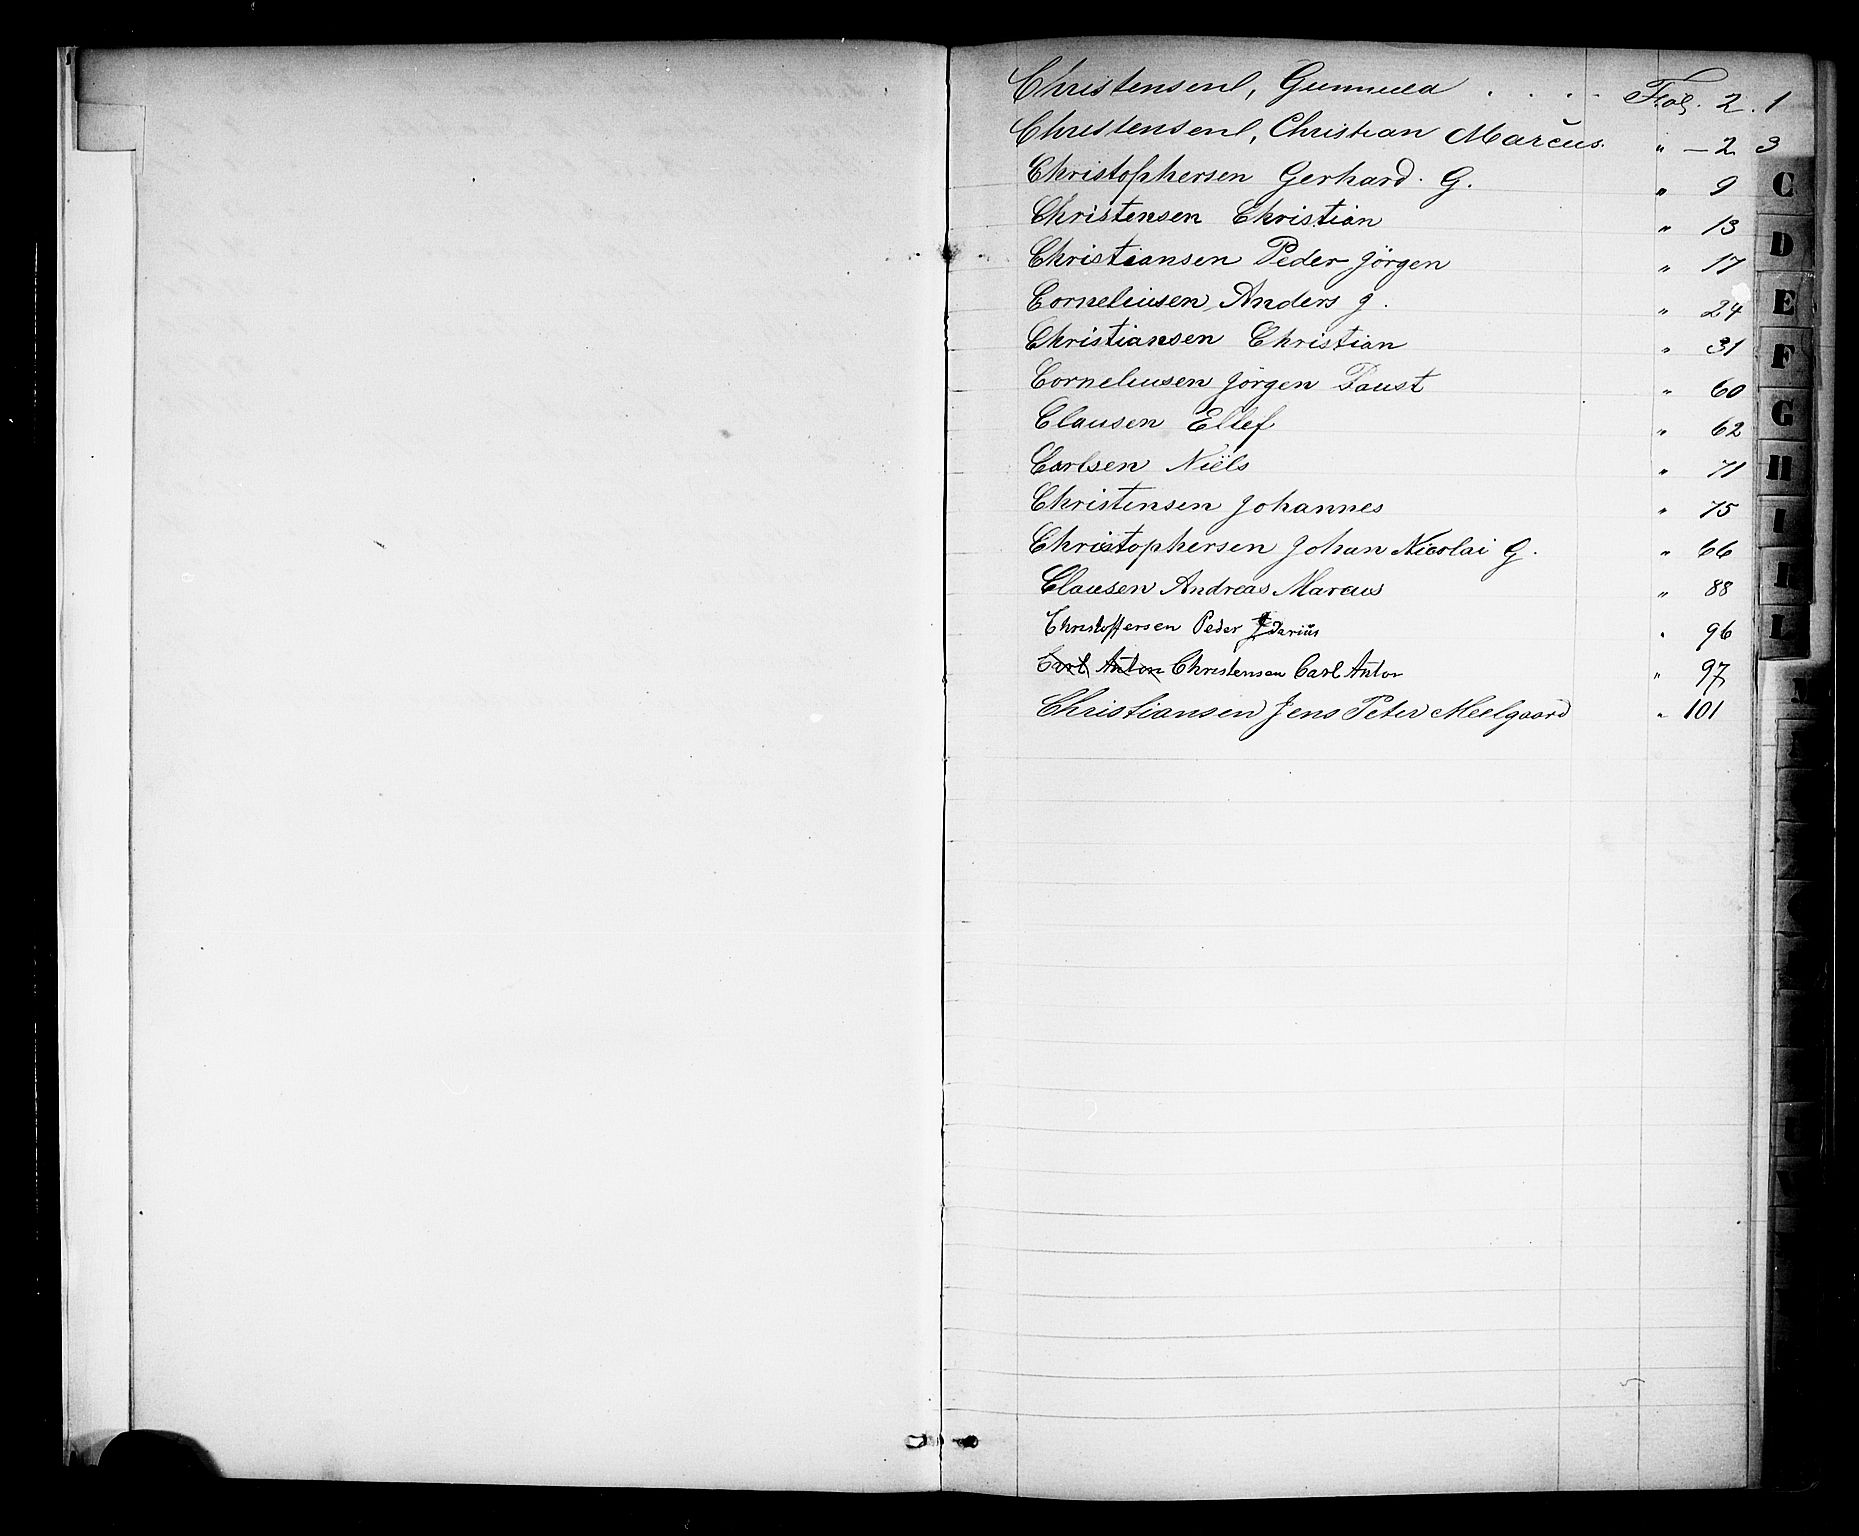 Christensen, Gunnuld . . . . Fol. 2. 1
Christensen, Christian Marcus. " — 2 3
Christophersen Gerhard. G. " 9
Christensen Christian " 13
Christiansen Peder Jörgen " 17
Corneliusen Anders J. " 24
Christiansen Christian " 31
Corneliusen Jörgen Faust " 60
Clausen Ellef " 62
Carlsen Niels " 71
Christensen Johannes " 75
Christophersen Johan Nicolai G. " 66
Clausen Andreas Marcus " 88
Christoffersen Peder " 96
Carl Anton Christensen Carl Anton " 97
Christiansen Jens Peter Meelgaard " 101
C
D
E
F
G
H
I
L